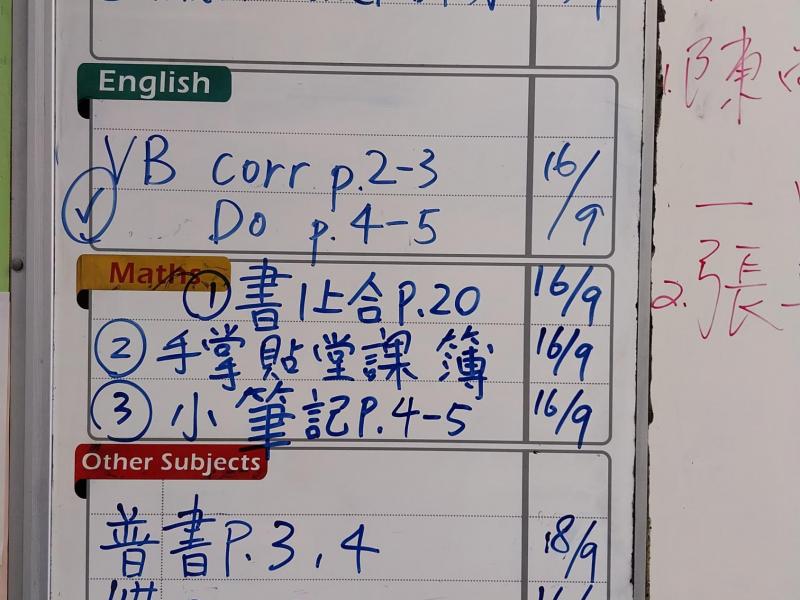 English
VB corr p.2-3 16/
✓ Do p.4-5 /9
Maths
① 書1上合P.20 16/9
② 手掌貼堂課簿 16/9
③ 小筆記P.4-5 16/9
Other Subjects
普書P.3,4 18/9
1.陳
一
2.張